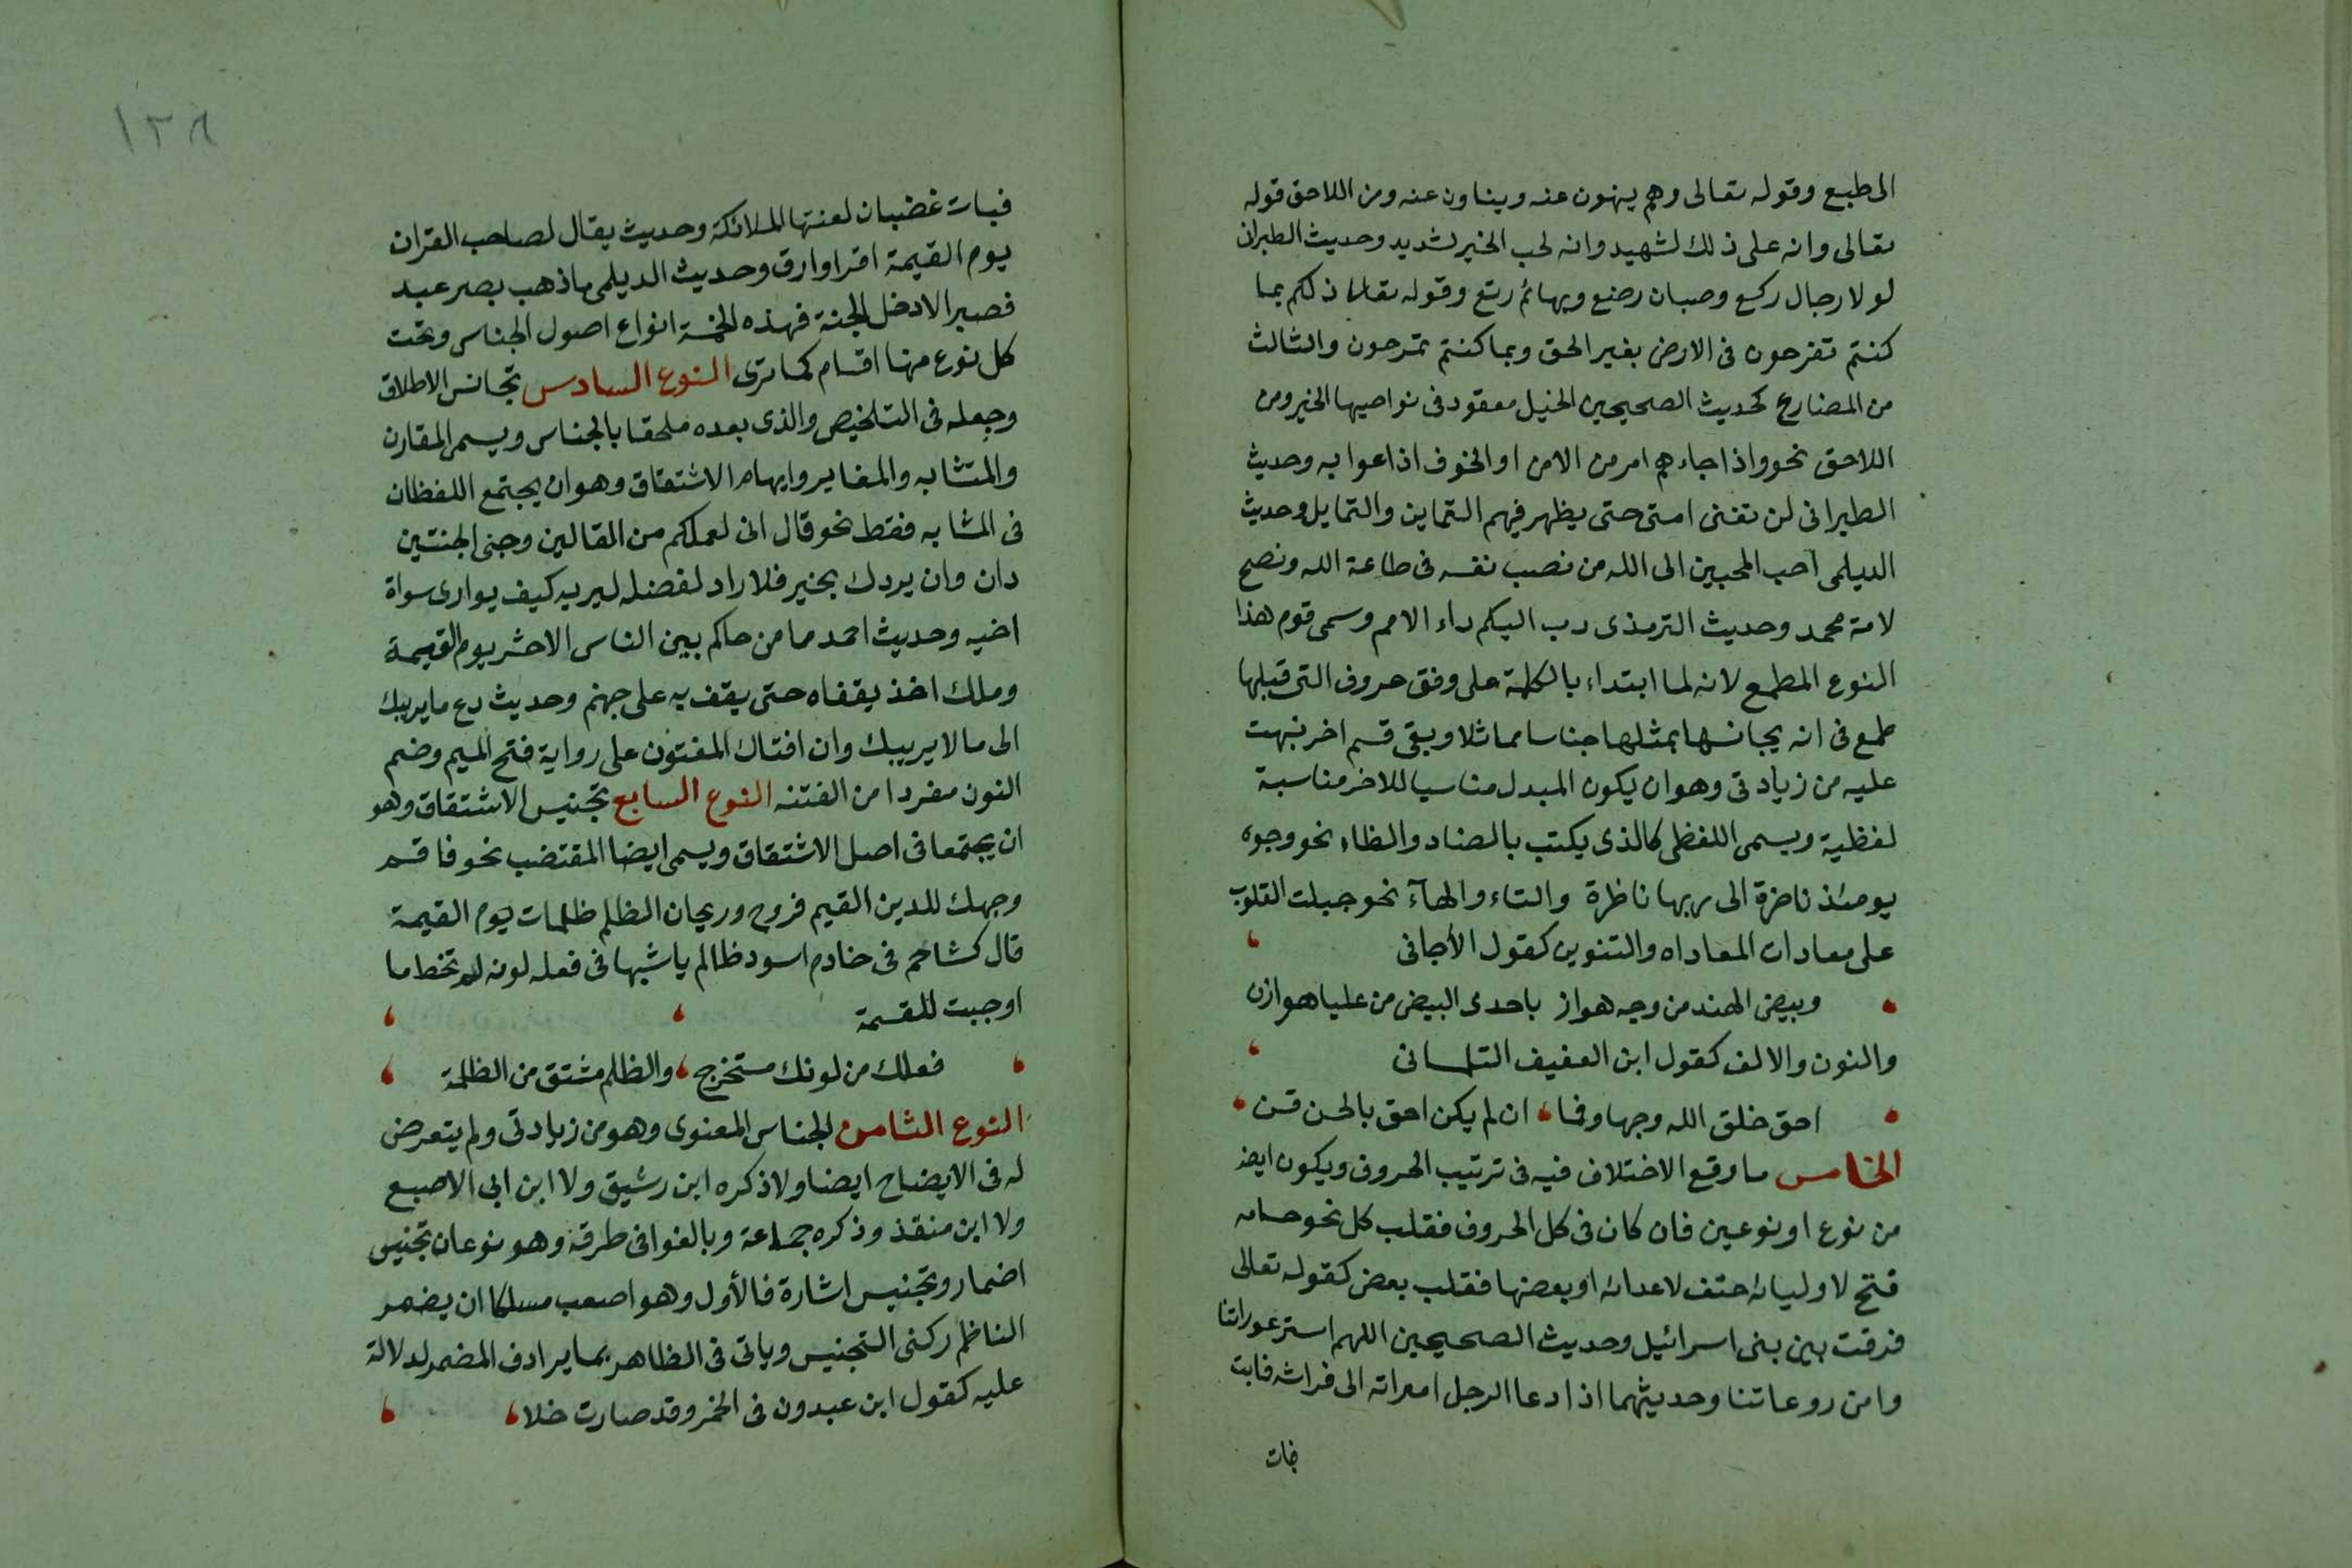 الى طبع وقوله تعالى وهم ينهون عنه ويناون عنه ومن اللاحق قوله
تعالى وانه على ذلك لشهيد وانه لحب الخير لشديد وحديث الطبرانى
لولا رجال ركع وصبيان رضع وبهائم رتع وقوله تعالى ذلكم بما
كنتم تفرحون فى الارض بغير الحق وبما كنتم تمرحون والثالث
من المضارع كحديث الصحيحين الخيل معقود فى نواصيها الخير ومن
اللاحق نحو واذا جاءهم امر من الامن او الخوف اذاعوا به وحديث
الطبرانى لن تفنى امتى حتى يظهر فيهم التماين والتمايل وحديث
الديلمى احب المحبين الى الله من نصب نفسه فى طاعة الله ونصح
لامة محمد وحديث الترمذى دب اليكم داء الامم وسمى قوم هذا
النوع المطمع لانه لما ابتداء بالكلمة على وفق حروف التى قبلها
طمع فى انه يجانسها بمثلها جناسا مماثلا وبقى قسم اخر نبهت
عليه من زيادتى وهو ان يكون المبدل مناسبا للاخر مناسبة
لفظية ويسمى اللفظى كالذى يكتب بالضاد والظاء نحو وجوه
يومئذ ناضرة الى ربها ناظرة والتاء والهآء نحو جبلت القلوب
على معادات المعاداه والتنوين كقول الأجانى
وبيض الهند من وجه هواز باحدى البيض من عليا هوازن
والنون والالف كقول ابن العفيف التلسانى
احق خلق الله وجها وفما ان لم يكن احق بالحسن فمن
الخامس ما وقع الاختلاف فيه فى ترتيب الحروف ويكون ايضا
من نوع او نوعين فان كان فى كل الحروف فقلب كل نحو حسامه
فتح لاوليائه حتف لاعدائه او بعضها فقلب بعض كقوله تعالى
فرقت بين بنى اسرائيل وحديث الصحيحين اللهم استر عوراتنا
وامن روعاتنا وحديثهما اذا دعا الرجل امراته الى فراشه فابت
فبات
١٣٨
فبات غضبان لعنتها الملائكة وحديث يقال لصاحب القران
يوم القيمة اقرا وارق وحديث الديلمى ما ذهب بصر عبد
فصبر الا دخل الجنة فهذه الخمسة انواع اصول الجناس وتحت
كل نوع منها اقسام كما ترى النوع السادس تجانس الاطلاق
وجعله فى التلخيص والذى بعده ملحقا بالجناس ويسمى المقارن
والمتشابه والمغاير وايهام الاشتقاق وهو ان يجتمع اللفظان
فى المشابه فقط نحو قال انى لعملكم من القالين وجنى الجنتين
دان وان يردك بخير فلا راد لفضله ليريه كيف يوارى سواة
اخيه وحديث احمد ما من حاكم بين الناس الا حشر يوم القيمة
وملك اخذ بقفاه حتى يقف به على جهنم وحديث دع ما يريبك
الى ما لا يريبك وان افتاك المفتون على رواية فتح الميم وضم
النون مفردا من الفتنه النوع السابع تجنيس الاشتقاق وهو
ان يجتمعا فى اصل الاشتقاق ويسمى ايضا المقتضب نحو فاقم
وجهك للدين القيم فروح وريحان الظلم ظلمات يوم القيمة
قال كشاجم فى خادم اسود ظالم يا شبها فى فعله لونه لم تخط ما
اوجبت القسمة
فعلك من لونك مستخرج والظلم مشتق من الظلمة
النوع الثامن الجناس المعنوى وهو من زيادتى ولم يتعرض
له فى الايضاح ايضا ولا ذكره ابن رشيق ولا ابن ابى الاصبع
ولا ابن منقذ وذكره جماعة وبالغوا فى طرقه وهو نوعان تجنيس
اضمار وتجنيس اشارة فالأول وهو اصعب مسلكا ان يضمر
الناظم ركنى التجنيس وياتى فى الظاهر بما يرادف المضمر لدلالة
عليه كقول ابن عبدون فى الخمر وقد صارت خلا